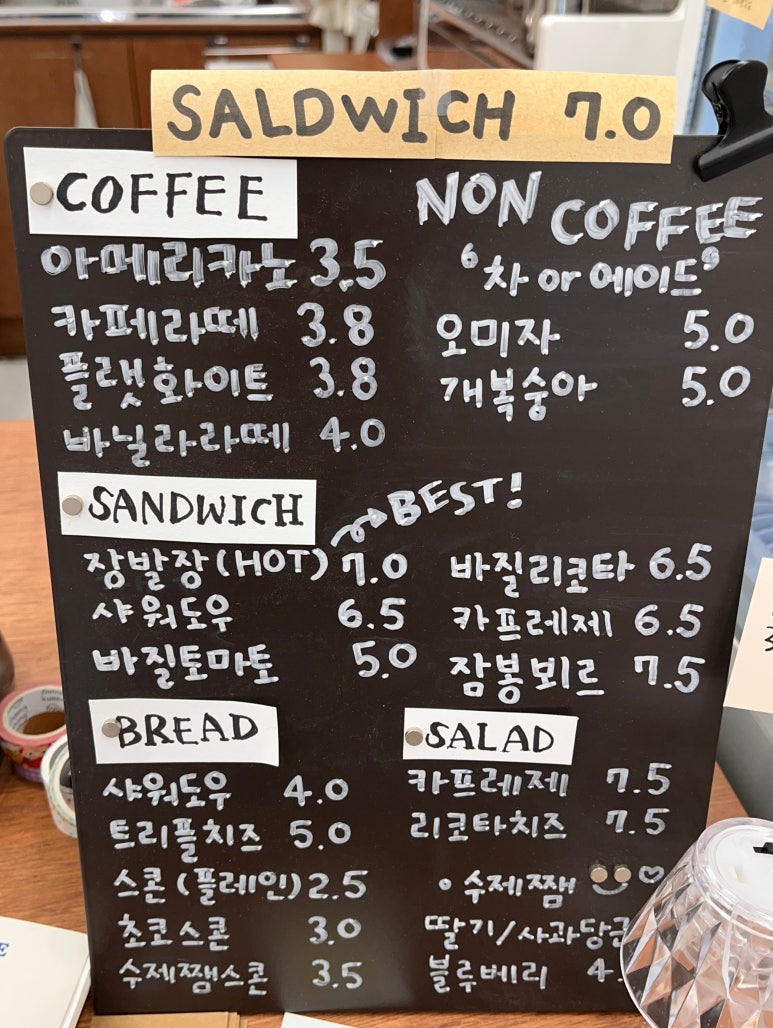 SALDWICH 7.0
COFFEE
아메리카노 3.5
카페라떼 3.8
플랫화이트 3.8
바닐라라떼 4.0
NON COFFEE
'차 or 에이드'
오미자 5.0
개복숭아 5.0
SANDWICH
BEST!
장발장(HOT) 7.0
샤워도우 6.5
바질토마토 5.0
바질리코타 6.5
카프레제 6.5
잠봉뵈르 7.5
BREAD
샤워도우 4.0
트리플치즈 5.0
스콘(플레인) 2.5
초코스콘 3.0
수제쨈스콘 3.5
SALAD
카프레제 7.5
리코타치즈 7.5
• 수제쨈
딸기/사과당근
블루베리 4.